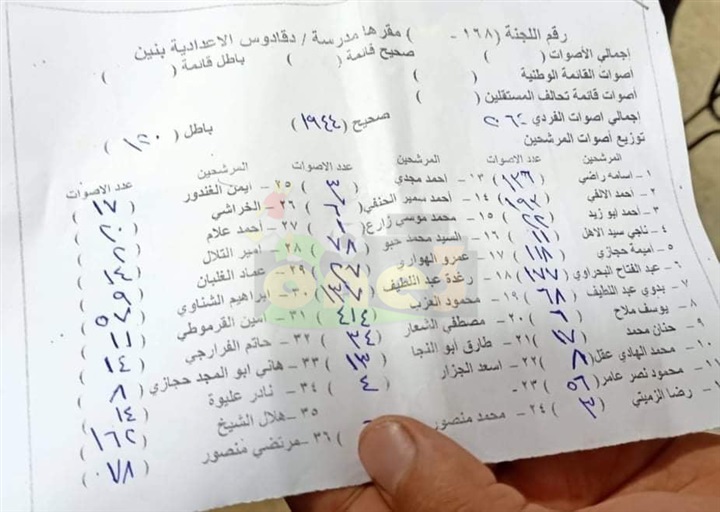 رقم اللجنة (١٦٨ - ) مقرها مدرسة / دقادوس الاعدادية بنين
إجمالي الأصوات ( ) صحيح قائمة ( ) باطل قائمة ( )
أصوات القائمة الوطنية ( )
أصوات قائمة تحالف المستقلين ( )
إجمالي اصوات الفردي ٢٠٦٤ صحيح (١٩٤٤) باطل (١٢٠)
توزيع أصوات المرشحين
المرشحين عدد الاصوات المرشحين عدد الاصوات المرشحين عدد الاصوات
١- اسامه راضي (١٢٦) ١٣- احمد مجدي (٣) ٢٥- ايمن الغندور (١٧)
٢- احمد الالفي (١٩٢) ١٤- أحمد سمير الحنفي ٢٦- الخراشي
٣- احمد ابو زيد (٢٢) ١٥- محمد موسي زارع ٢٧- أحمد علام
٤- ناجي سيد الاهل (١١) ١٦- السيد محمد حبو (٧٨) ٢٨- التلال
٥- اميمة حجازي (١١٨) ١٧- عمرو الهواري ٢٩- عماد الغلبان
٦- عبد الفتاح البحراوي (١٧٧) ١٨- رغدة عبد اللطيف ٣٠- ابراهيم الشناوي
٧- بدوي عبد اللطيف (٦٨) ١٩- محمود العزب (٤١٤) ٣١- امين القرموطي
٨- يوسف ملاح (٦) ٢٠- مصطفي الشعار (٣٤) ٣٢- حاتم الفرارجي (١١)
٩- حنان محمد (١٧) ٢١- طارق ابو النجا (١٣) ٣٣- هاني ابو المجد حجازي (١٤)
١٠- محمد الهادي عقل (٨) ٢٢- اسعد الجزار (٤) ٣٤- نادر عليوة (٨)
١١- محمود نصر عامر (٥٦) ٢٣- ٣٥- هلال الشيخ (١٤)
رضا الزميتي ٢٤- محمد منصور ٣٦- مرتضي منصور (١٦٢)